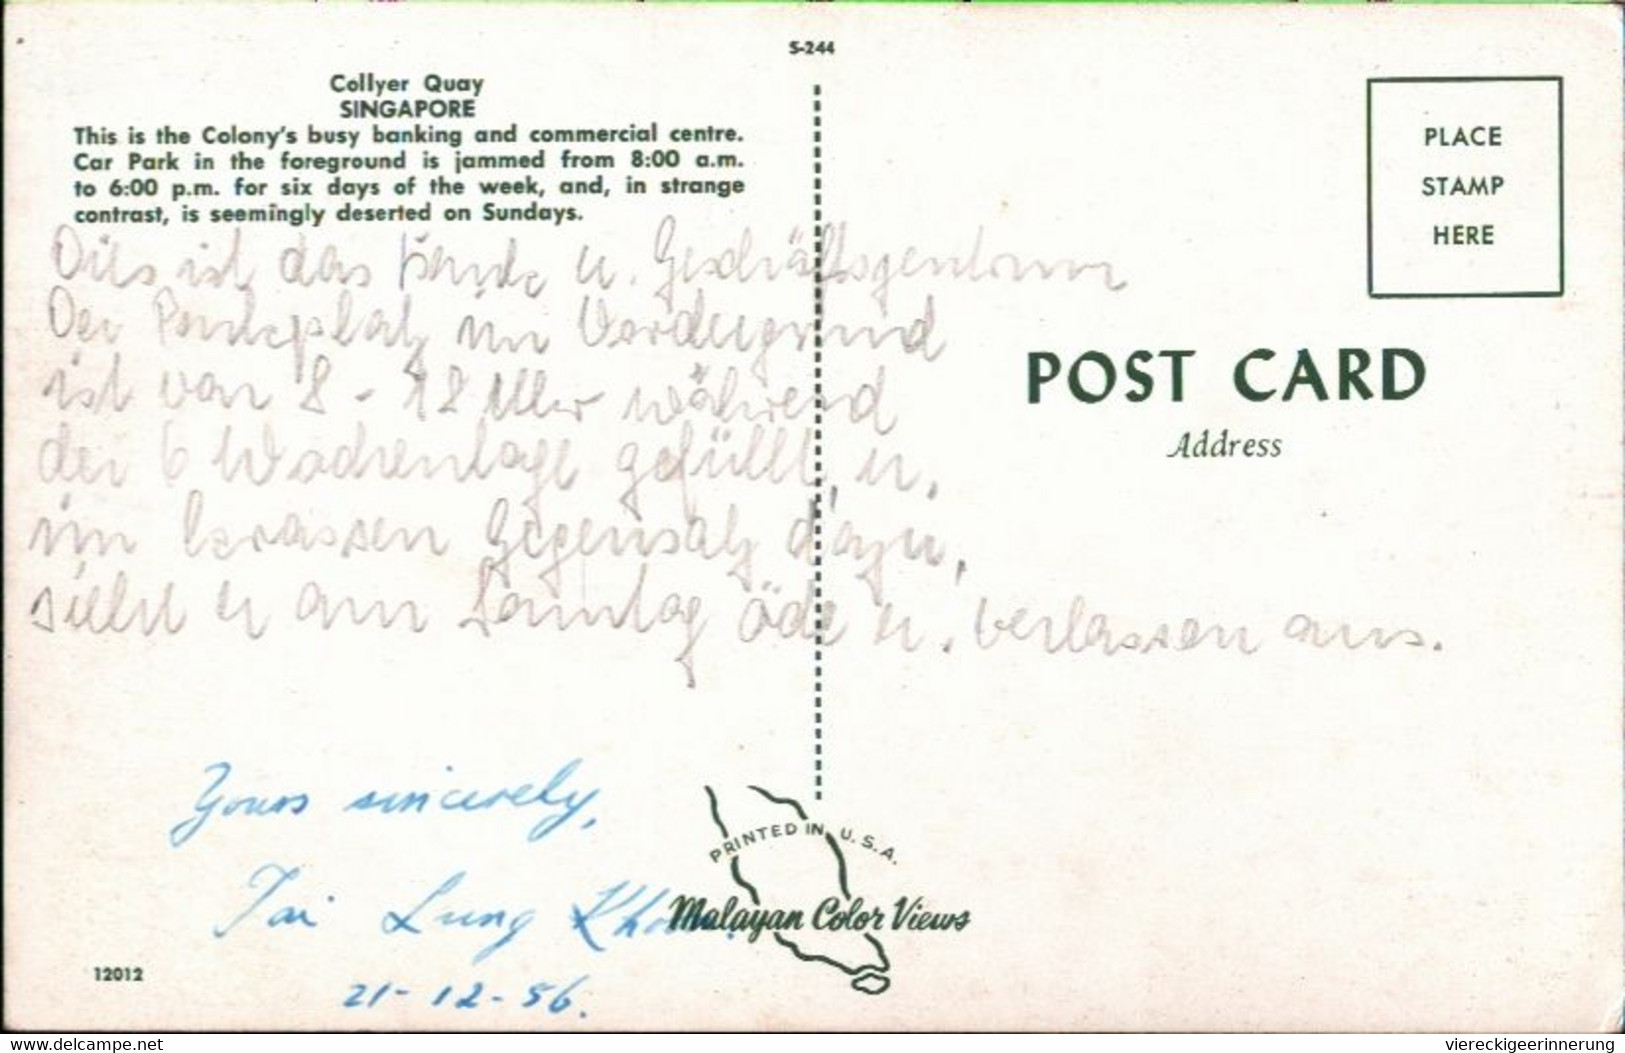 S-244
Collyer Quay
SINGAPORE
This is the Colony's busy banking and commercial centre.
Car Park in the foreground is jammed from 8:00 a.m.
to 6:00 p.m. for six days of the week, and, in strange
contrast, is seemingly deserted on Sundays.
Dies ist das u. Geschäftsgentrum
Der Parkplatz im Vordergrund
ist von 8 - 18 Uhr während
der 6 Wochentage gefüllt, u.
im krassen Gegensatz dazu,
sieht er am Sonntag öde u. verlassen aus.
Yours sincerely,
Tai Lung
21-12-56.
12012
PLACE
STAMP
HERE
POST CARD
Address
PRINTED IN U.S.A.
Malayan Color Views
www.delcampe.net
viereckigeerinnerung